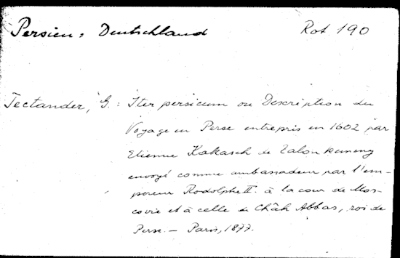 Persien : Deutschland Rot 190
Tectander, G. : Iter persicum ou Description du
Voyage en Perse entrepris en 1602 par
Etienne Kakasch de Zalonkemeny
envoyé comme ambassadeur par l'em-
pereur Rodolphe II. à la cour de Mos-
covie et à celle de Châh Abbas, roi de
Perse. — Paris, 1877.